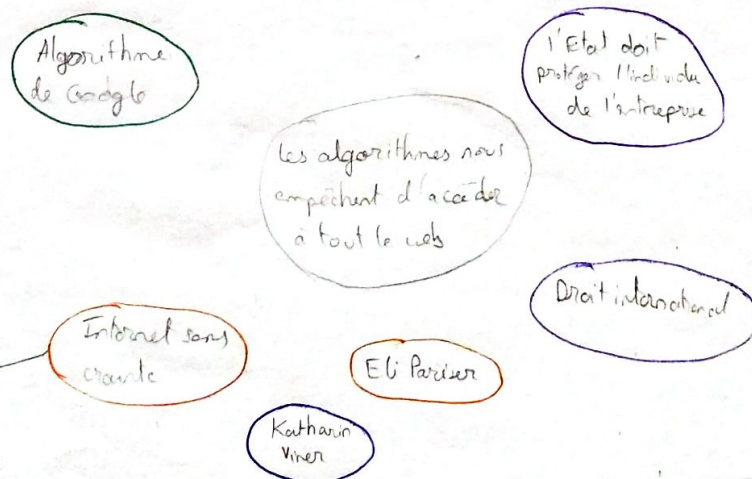 Algorithme
de Google
l'Etat doit
protéger l'individu
de l'entreprise
les algorithmes nous
empêchent d'accéder
à tout le web
Droit international
Internet sans
crainte
Eli Pariser
Katharin
Viner